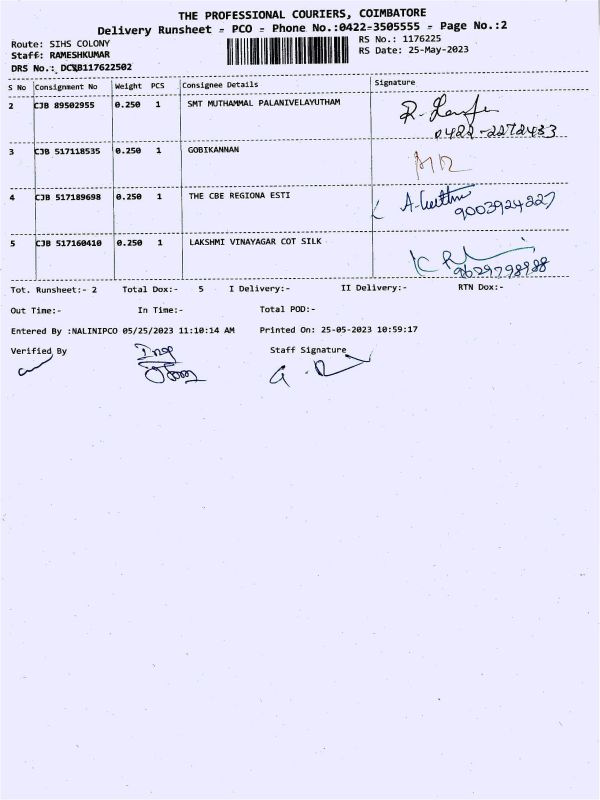 THE PROFESSIONAL COURIERS, COIMBATORE
Delivery Runsheet = PCO = Phone No.:0422-3505555 = Page No.:2
Route: SIHS COLONY RS No.: 1176225
Staff: RAMESHKUMAR RS Date: 25-May-2023
DRS No.:
S No Consignment No Weight PCS Consignee Details Signature
2 CJB 89502955 0.250 1 SMT MUTHAMMAL PALANIVELAYUTHAM
0422-2272433
3 CJB 517118535 0.250 1 GOBIKANNAN
4 CJB 517189698 0.250 1 THE CBE REGIONA ESTI
9003924227
5 CJB 517160410 0.250 1 LAKSHMI VINAYAGAR COT SILK
9629798988
Tot. Runsheet:- 2 Total Dox:- 5 I Delivery:- II Delivery:- RTN Dox:-
Out Time:- In Time:- Total POD:-
Entered By :NALINIPCO 05/25/2023 11:10:14 AM Printed On: 25-05-2023 10:59:17
Verified By Staff Signature